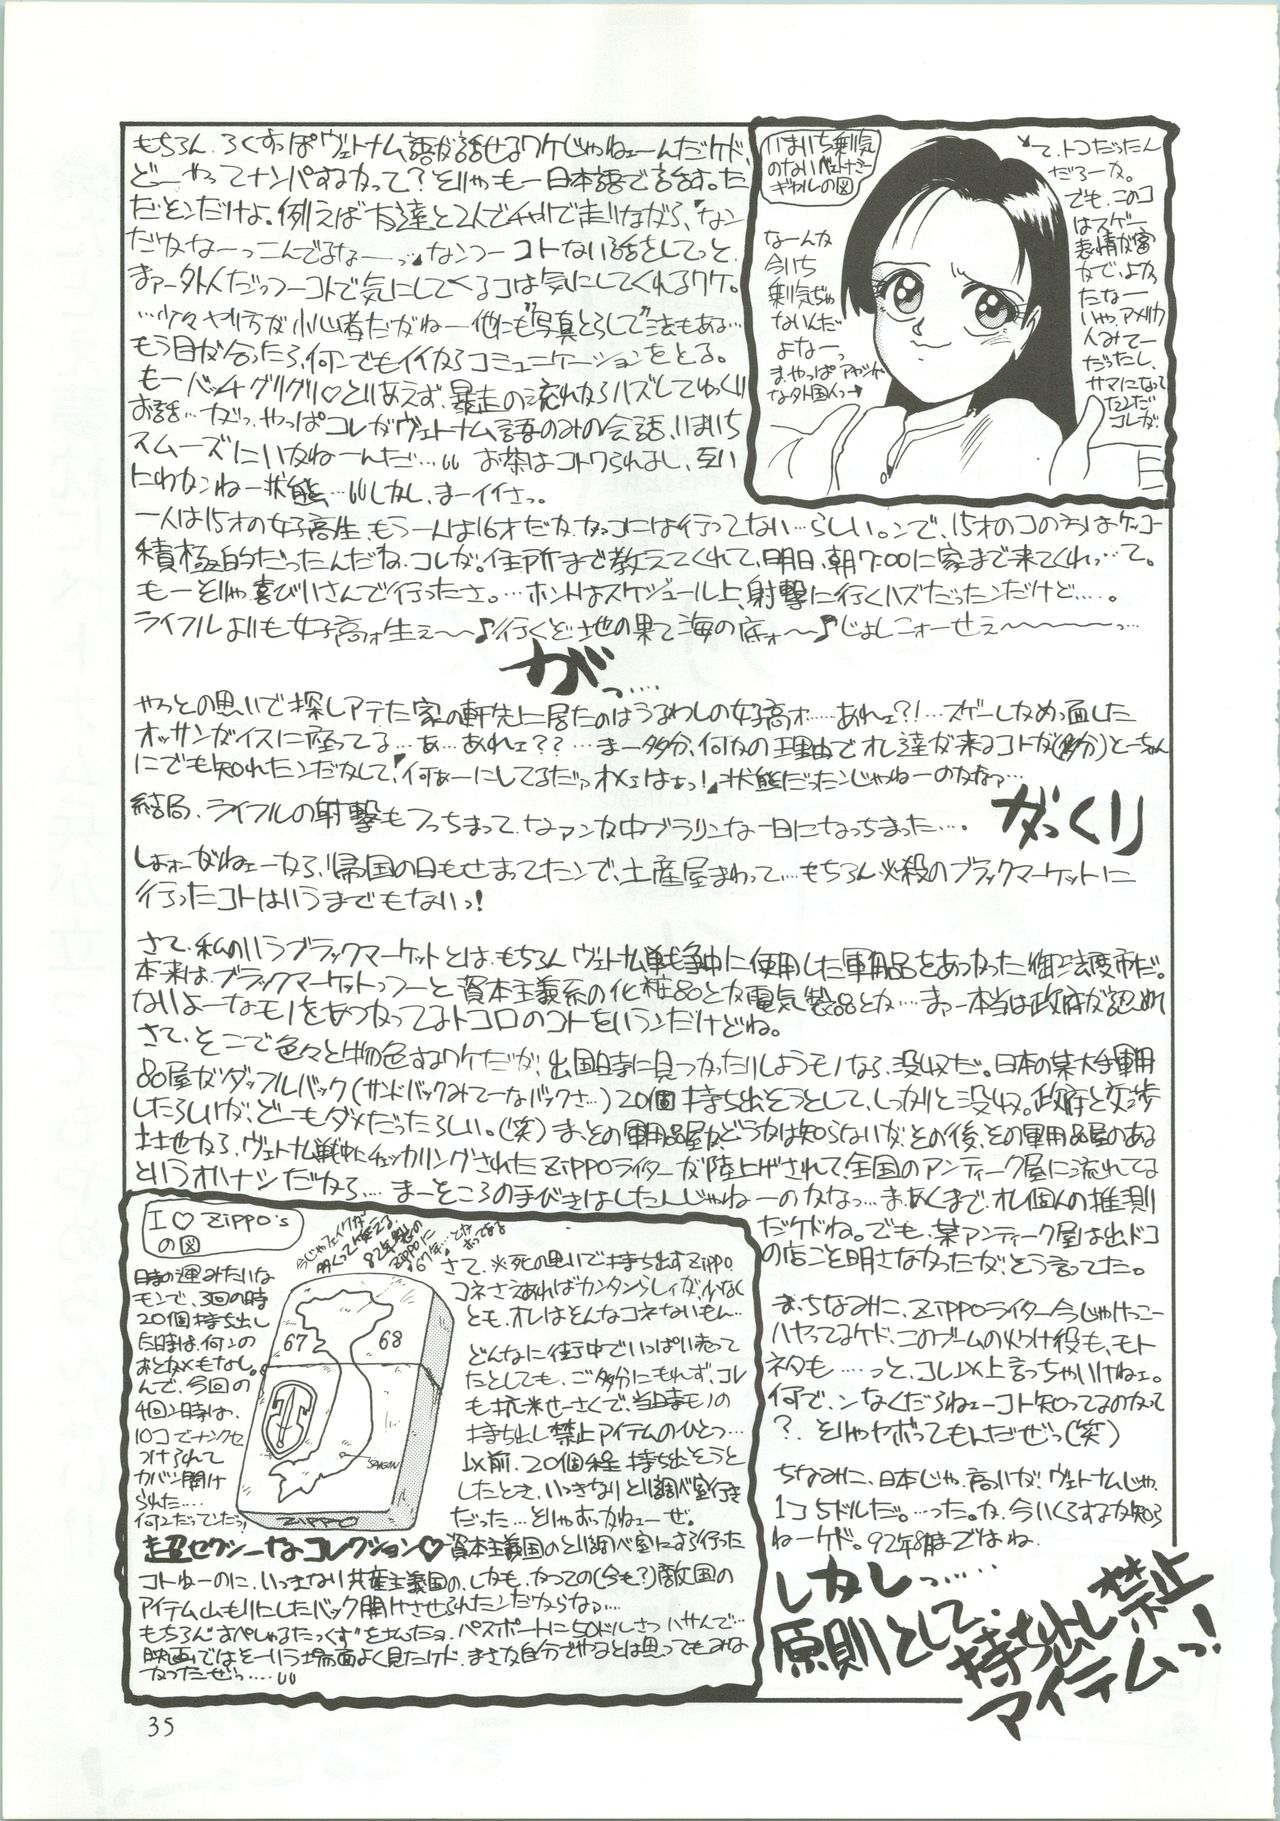 もちろん、ろくすっぽヴェトナム語が話せるワケじゃねェーんだケド、
どーやってナンパするかって？そりゃもー日本語で話す。た
だそンだけよ。例えば友達と2人でチャリで走りながら、「なン
だかなーっこんでるなーっ」なんつーコトない話をしてっと、
まァー外人だっつーコトで気にしてくるコは気にしてくれるワケ。
…少々やり方が小心者だがねー他にも"写真とらして"法もある…
もう目が合ったら、何ンでもイイからコミュニケーションをとる。
もーバッチグリグリ♡とりあえず、暴走の流れからハズしてゆっくり
お話…だがっ、やっぱコレがヴェトナム語のみの会話、いまいち
スムーズにいかねーんだ… お茶はコトワられまし、互い
にわかンねー状態、…しかし、まーイイさっ。
一人は15才の女子高生、もう一人は16才だがガッコには行ってない…らしい。ンで、15才のコの方はケッコー
積極的だったんだね、コレが。住所まで教えてくれて、明日、朝7:00に家まで来てくれ…って。
もーそりゃ喜びいさんで行ったさ。…ホントはスケジュール上、射撃に行くハズだったンだけど…。
ライフルよりも女子高ォ生ェ〜〜♪行くぞ地の果て海の底ォ〜♪じょしこォーせェ〜〜〜〜っ…
がっ….
やっとの思いで探しアテた家の軒先に居たのはうるわしの女子高ォ……あれェ?!…スゲーしかめっ面した
オッサンがイスに座ってる…あ…あれェ??…まー多分、何かの理由でオレ達が来るコトが(多分)とーちゃん
にでも知れたンだかして、「何ぁーにしてるだァオメェはょっ!」状態だったンじゃねーのかなァ…
がっくり
結局、ライフルの射撃もフっちまって、なァンか中ブラリンな一日になっちまった…。
しょォーがねェーから、帰国の日もせまってたンで、土産屋まわって…もちろん必殺のブラックマーケットに
行ったコトはいうまでもないっ!
さて、私のいうブラックマーケットとは、もちろんヴェトナム戦争中に使用した軍用品をあつかった御法度市だ。
本来は、ブラックマーケットっつーと資本主義系の化粧品とか電気製品とか…まァー本当は政府が認めれ
ないよーなモノをあつかってるトコロのコトをいうンだけどね。
さて、そこで色々と物色するワケだが、出国時に見つかったりしようモノなら、没収だ。日本の某大手軍用
品屋がダッフルバック(サンドバックみてーなバックさ…)20個持ち出そうとして、しっかりと没収。政府と交渉
したらしいが、どーもダメだったらしい。(笑) ま、その軍用品屋かどうかは知らないが、その後、その軍用品屋のある
土地から、ヴェトナム戦中にチェッカリングされたZiPPOライターが陸上げされて、全国のアンティーク屋に流れてる
というオハナシだから… まーそころの手びきはしたんじゃねーのかなっ…ま、あくまで、オレ個人の推測
だケドね。でも、某アンティーク屋は出ドコ
の店ごと明さなかったが、そう言ってた。
ま、ちなみに、ZiPPOライター今じゃけっこー
ハヤってるケド、このブームの火つけ役も、モト
ネタも……っと、コレ以上言っちゃいけねェ。
何で、ンなくだらねェーコト知ってるのかって
？、そりゃヤボってもんだぜっ(笑)
ちなみに、日本じゃ、高いが、ヴェトナムじゃ、
1コ5ドルだ。…った。が、今いくらするか知ら
ねーケド。92年8月まではね。
しかしっ….
原則として、
持ち出し禁止
アイテムっ!
いまいち乗気
のないベトナミー
ギャルの図
なーんか
今いち
乗気ぢゃ
ないんだ
よなーっ
まやっぱアヤシゲ
なガイ国人っ→
って、トコだったん
だろーか。
でも、このコ
はスゲー
表情が富
かで、よか
たなー
いや、アメリカ
人みてー
だったし、
サマになって
たンだ
コレが。
I ♡ ZiPPO's
の図
時の運みたいな
モンで、3回の時
20個持ち出し
た時は、何ンの
おとがメもなし。
んで、今回の
4回ン時は、
10コでナンクセ
つけられて
カバン開け
られた…
何ンだってンだっ!
67
68
SAIGON
ZIPPO
さて、※死の思いで持ち出すZippo。
コネさえあればカンタンらしィが、少なく
とも、オレはそんなコネないもん…
どんなに街中でいっぱい売って
たとしても、ご多分にもれず、コレ
も抗米せーさくで、当時モノの
持ち出し禁止アイテムのひとつ…
以前、20個程持ち出そうと
したとき、いっきなりとり調べ室行き
だった…とりゃおっかねェーぜ。
超セクシーなコレクション♡ 資本主義国のとり調べ室にさえ行った
コトねーのに、いっきなり共産主義国の、しかも、かつての(今も?)敵国の
アイテム山もりにしたバック開けさせられたンだからなァ…
もちろん"すぺしゃるたっくす"を払たョ。パスポートに50ドルさっハサんで…
映画ではそーいう場面よく見たケド、まさか自分でやるとは思ってもみな
かったぜっ…
35